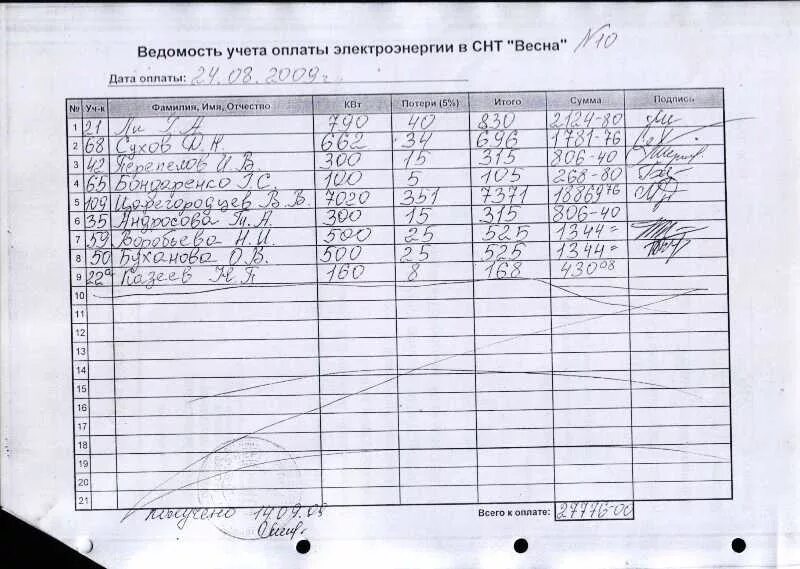 Ведомость учета оплаты электроэнергии в СНТ "Весна" №10
Дата оплаты: 24.08.2009г
№ Уч-к Фамилия, Имя, Отчество КВт Потери (5%) Итого Сумма Подпись
1 21 Ли Г.А. 790 40 830 2124-80
2 68 Сухов 662 34 696 1781-76
3 42 Перепелов И.В. 300 15 315 806-40
4 65 Бондаренко Г.С. 100 5 105 268-80
5 109 Царегородцев В.В. 7020 351 7371 18869 76
6 35 Андросова Т.А. 300 15 315 806-40
7 59 Воробьева Н.И. 500 25 525 1344=
8 50 Буханова О.В. 500 25 525 1344=
9 22а Казеев Н.П 160 8 168 430 08
10
11
12
13
14
15
16
17
18
19
20
21
Всего к оплате: 27776-00
получено 14.09.09